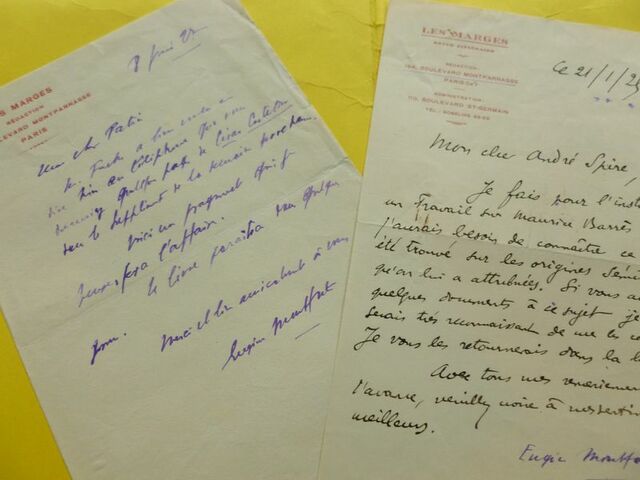 S MARGES
RÉDACTION
LEVARD MONTPARNASSE
PARIS
8 juin 27
Mon cher
M. a bien voulu
me dire au téléphone
César Castelor
le supplément de la semaine prochaine.
Voici un fragment qui
fera l'affaire.
Le livre paraîtra dans quelques
jours.
Merci et bien amicalement à vous
Eugène Montfort
LES MARGES
REVUE LITTÉRAIRE
RÉDACTION
164, BOULEVARD MONTPARNASSE
PARIS
ADMINISTRATION
BOULEVARD ST-GERMAIN
TÉL.: GOBELINS
Ce 21/1/25
Mon cher André Spire,
Je fais pour l'inst
un travail sur Maurice Barrès
J'aurais besoin de connaître ce
été trouvé sur les origines sémi
qu'on lui a attribuées. Si vous a
quelques documents à ce sujet je
serais très reconnaissant de me les co
Je vous les retournerais dans la
Avec tous mes remerciemen
l'avance, veuillez croire à mes sentim
meilleurs.
Eugène Montfo